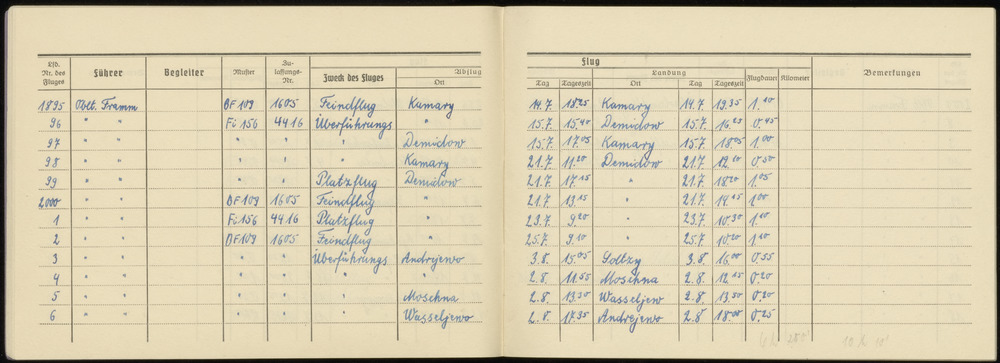 Lfd. Nr. des Fluges Führer Begleiter Muster Zulassungs-Nr. Zweck des Fluges Abflug Ort
Flug
Tag Tageszeit Landung Ort Tag Tageszeit Flugdauer Kilometer Bemerkungen
1895 Oblt. Framm BF 109 1605 Feindflug Kamary 14.7. 18.25 Kamary 14.7. 19.35 1.10
96 " " Fi 156 4416 Überführungs " 15.7. 15.40 Demidow 15.7. 16.25 0.45
97 " " " " " Demidow 15.7. 17.05 Kamary 15.7. 18.05 1.00
98 " " " " Kamary 21.7. 11.20 Demidow 21.7. 12.10 0.50
99 " " " " Platzflug Demidow 21.7. 17.15 " 21.7. 18.20 1.05
2000 " " BF 109 1605 Feindflug " 21.7. 13.15 " 21.7. 14.15 1.00
1 " " Fi 156 4416 Platzflug 23.7. 9.20 " 23.7. 10.30 1.10
2 " " BF 109 1605 Feindflug " 25.7. 9.10 " 25.7. 10.20 1.10
3 " " " " Überführungs Andrejewo 3.8. 15.05 16.00 0.55
4 " " " " " " 2.8. 11.55 Moschna 2.8. 12.15 0.20
5 " " " " " Moschna 2.8. 13.30 Wasseljewo 2.8. 13.50 0.20
6 " " " " " Wasseljewo 2.8. 17.35 Andrejewo 2.8 18.00 0.25